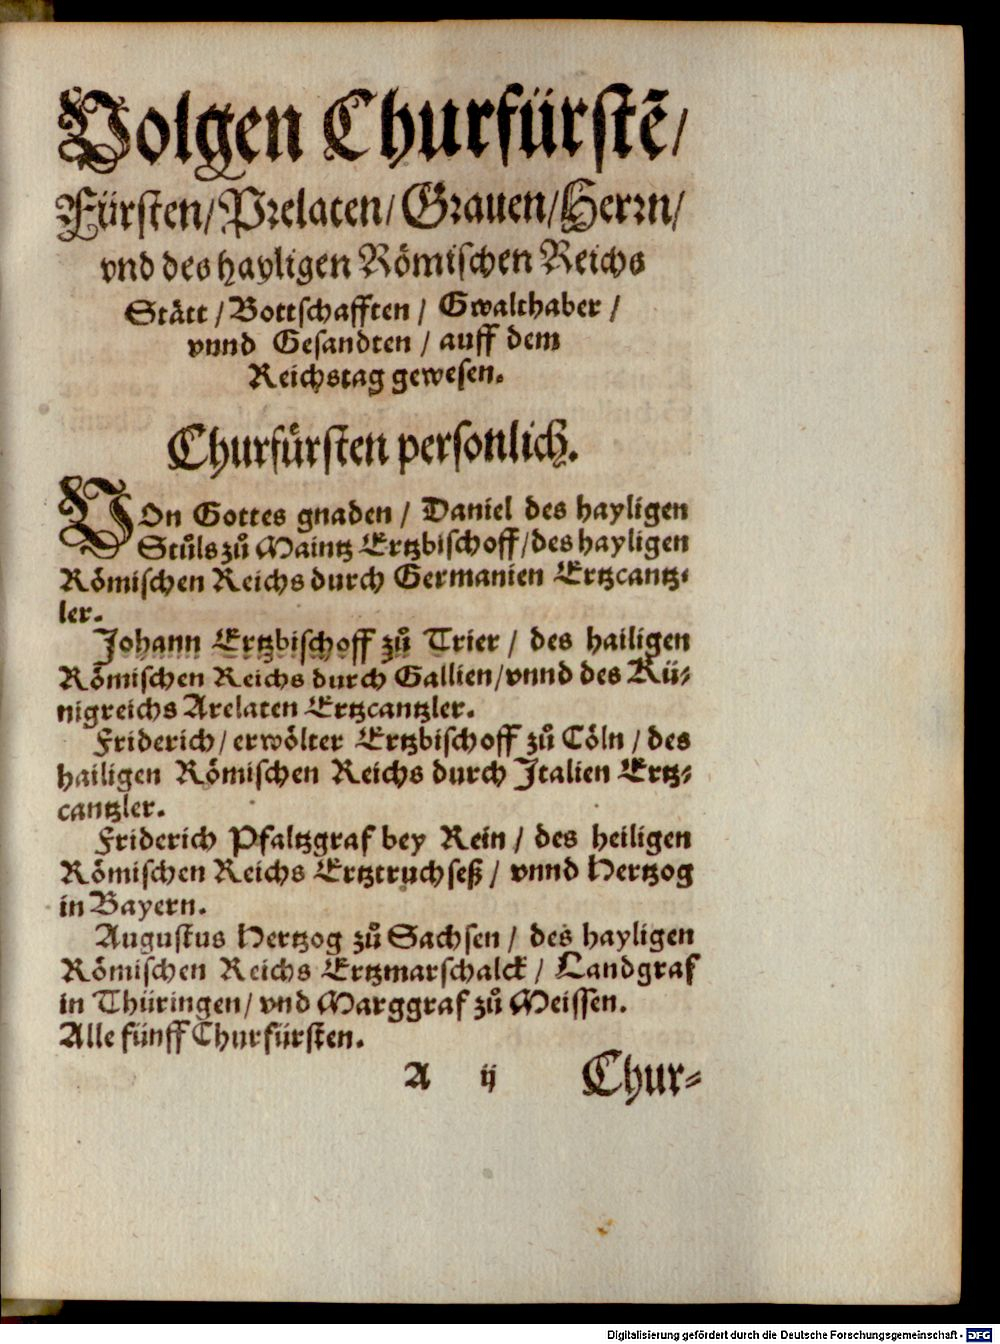 Volgen Churfürstẽ/
Fürsten/Prelaten/Grauen/Herrn/
vnd des hayligen Römischen Reichs
Stätt/Bottschafften/ Gwalthaber/
vnnd Gesandten/ auff dem
Reichstag gewesen.
Churfürsten personlich.
VOn Gottes gnaden/ Daniel des hayligen
Stůls zů Maintz Ertzbischoff/des hayligen
Römischen Reichs durch Germanien Ertzcantz-
ler.
Johann Ertzbischoff zů Trier/ des hailigen
Römischen Reichs durch Gallien/vnnd des Kü-
nigreichs Arelaten Ertzcantzler.
Friderich/erwölter Ertzbischoff zů Cöln/des
hailigen Römischen Reichs durch Italien Ertz-
cantzler.
Friderich Pfaltzgraf bey Rein/ des heiligen
Römischen Reichs Ertztruchseß/ vnnd Hertzog
in Bayern.
Augustus Hertzog zů Sachsen/ des hayligen
Römischen Reichs Ertzmarschalck/ Landgraf
in Thüringen/vnd Marggraf zů Meissen.
Alle fünff Churfürsten.
A ij Chur-
Digitalisierung gefördert durch die Deutsche Forschungsgemeinschaft - DFG